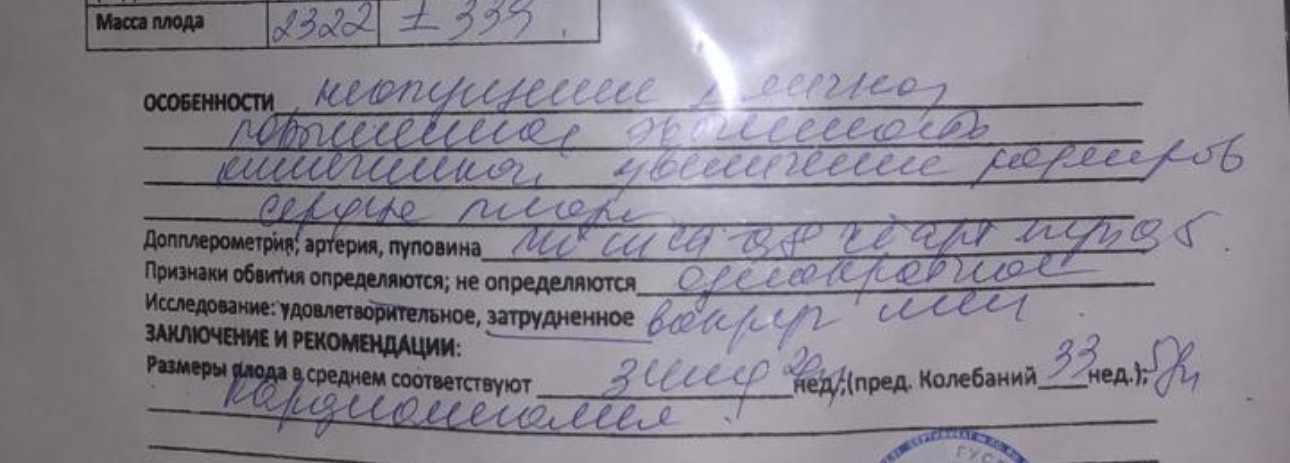 Масса плода 2322 ± 339
ОСОБЕННОСТИ неопущение яичка,
повышенное эхогенность
кишечника, увеличение размеров
сердце плода
Допплерометрия; артерия, пуповина
Признаки обвития определяются; не определяются однократное
Исследование: удовлетворительное, затрудненное вокруг шеи
ЗАКЛЮЧЕНИЕ И РЕКОМЕНДАЦИИ:
Размеры плода в среднем соответствуют нед,;(пред. Колебаний 33 нед.);
кардиомегалия